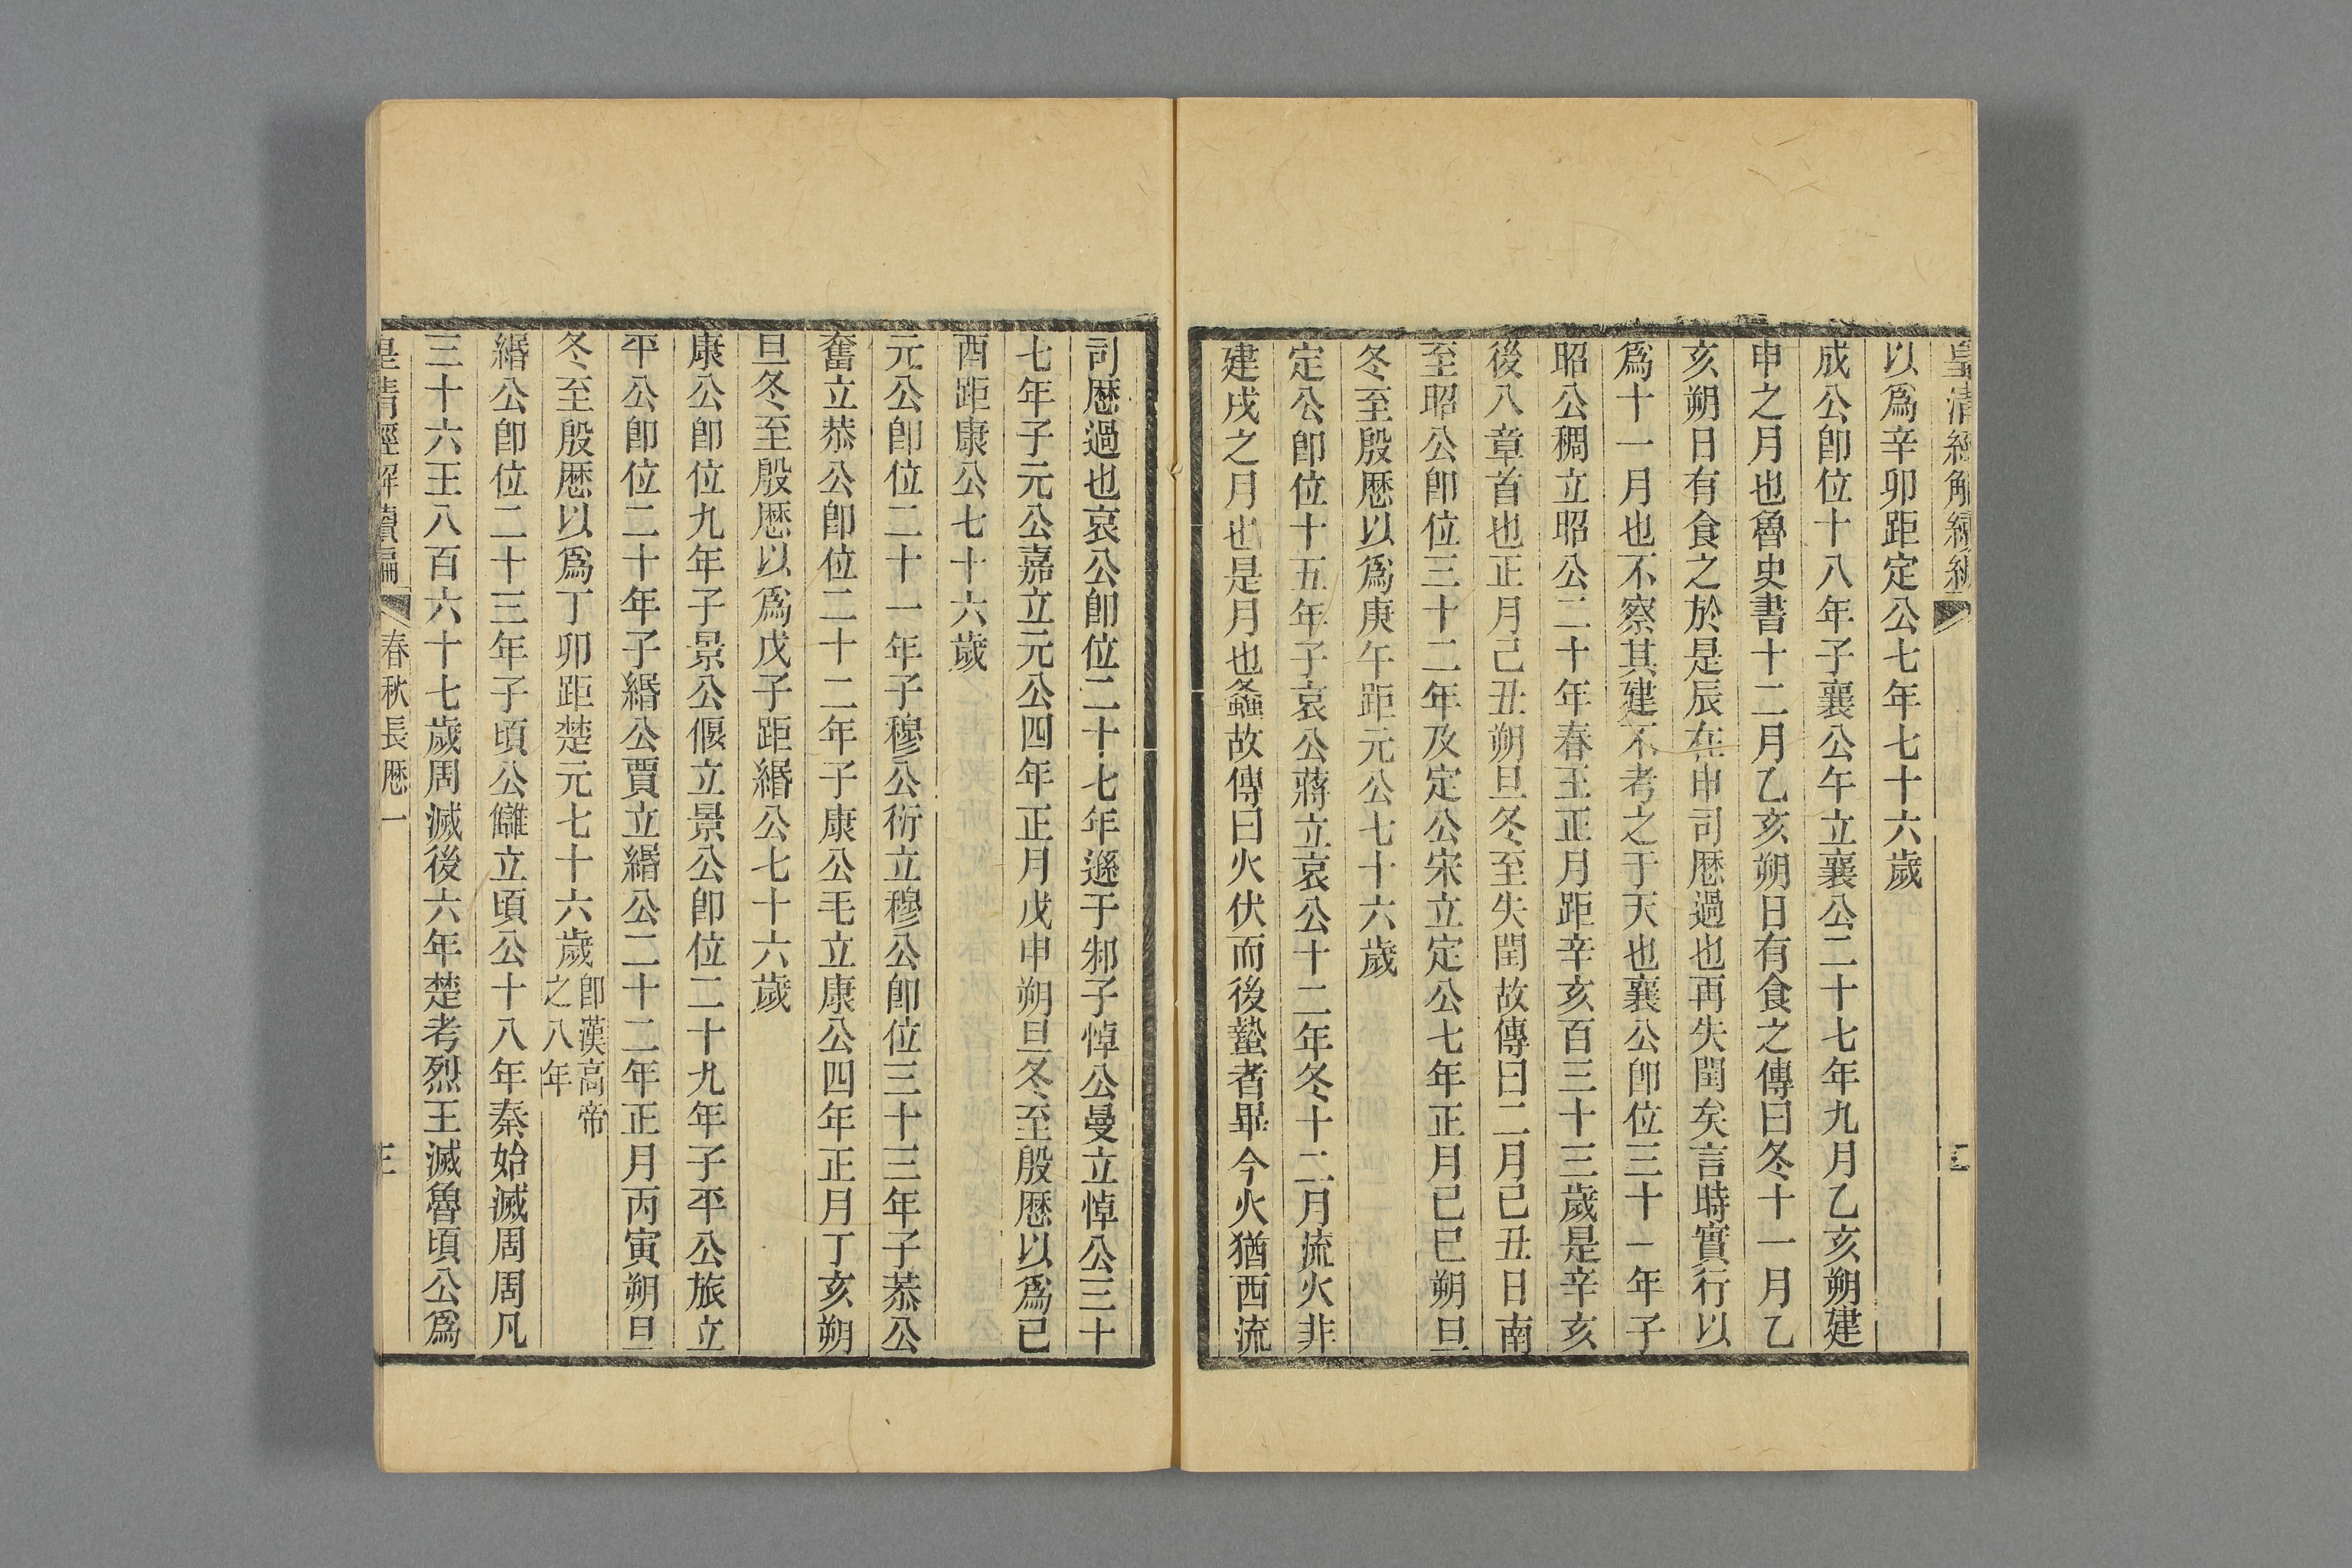 皇清經解續編
二
以爲辛卯距定公七年七十六歲
成公卽位十八年子襄公午立襄公二十七年九月乙亥朔建
申之月也魯史書十二月乙亥朔日有食之傳曰冬十一月乙
亥朔日有食之於是辰在申司厯過也再失閏矣言時實行以
爲十一月也不察其建不考之于天也襄公卽位三十一年子
昭公稠立昭公二十年春王正月距辛亥百三十三歲是辛亥
後八章首也正月己丑朔旦冬至失閏故傳曰二月己丑日南
至昭公卽位三十二年及定公宋立定公七年正月己巳朔旦
冬至殷厯以爲庚午距元公七十六歲
定公卽位十五年子哀公蔣立哀公十二年冬十二月流火非
建戌之月也是月也螽故傳曰火伏而後蟄者畢今火猶西流
司厯過也哀公卽位二十七年遜于邾子悼公曼立悼公三十
七年子元公嘉立元公四年正月戊申朔旦冬至殷厯以爲己
酉距康公七十六歲
元公卽位二十一年子穆公衍立穆公卽位三十三年子恭公
奮立恭公卽位二十二年子康公毛立康公四年正月丁亥朔
旦冬至殷厯以爲戊子距緡公七十六歲
康公卽位九年子景公偃立景公卽位二十九年子平公旅立
平公卽位二十年子緡公賈立緡公二十二年正月丙寅朔旦
冬至殷厯以爲丁卯距楚元七十六歲卽漢高帝之八年
緡公卽位二十三年子頃公讎立頃公十八年秦始滅周周凡
三十六王八百六十七歲周滅後六年楚考烈王滅魯頃公爲
皇清經解續編
春秋長厯一
三